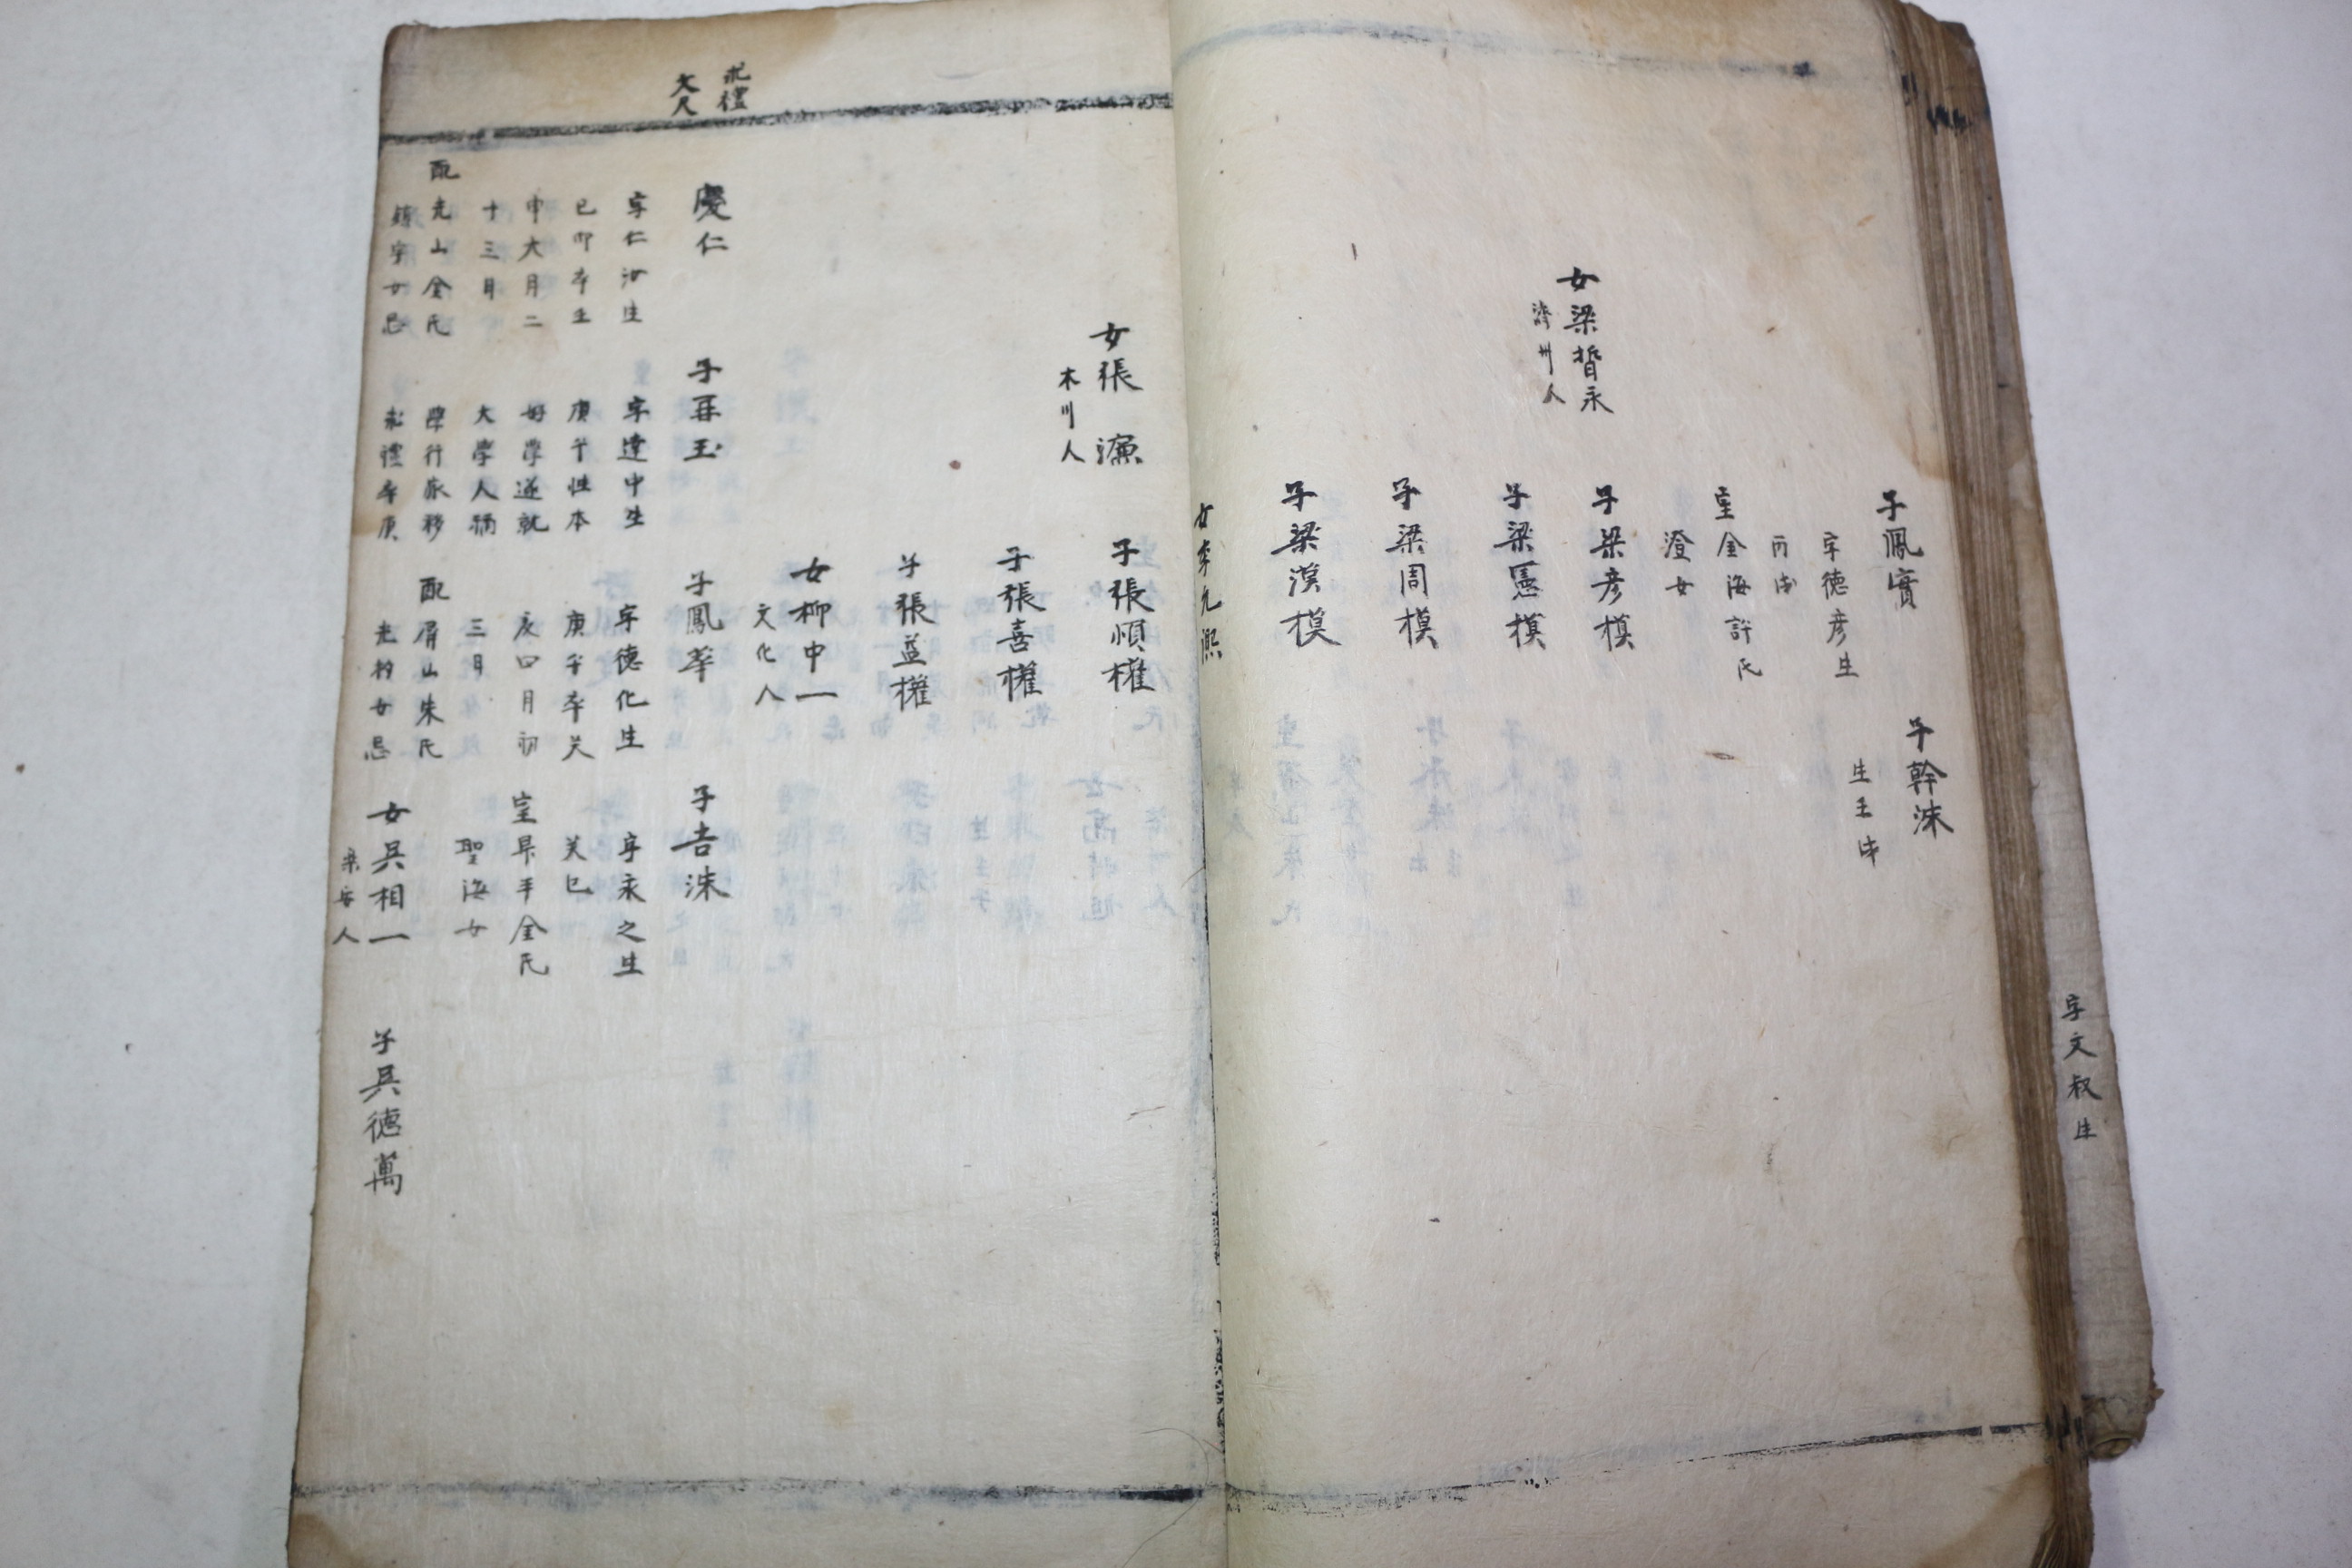 字文叔生
子鳳實
字德彦生
丙戌
室金海許氏
澄女
子幹洙
生壬申
女梁晢永
濟州人
子梁彦模
子梁憲模
子梁周模
子梁漢模
女李允熙
女張濂
木川人
子張順權
子張喜權
子張益權
女柳中一
文化人
求禮
文尺
慶仁
字仁汝生
己卯卒壬
申六月二
十三日
配光山金氏
鎮宇女忌
子再玉
字達中生
庚午性本
好學遂就
大學人稱
學行家移
求禮卒庚
子鳳華
字德化生
庚午卒癸
亥四月初
三日
配眉山朱氏
光 女忌
子吉洙
字永之生
癸巳
室昌平金氏
聖海女
女吳相一
樂安人
子吳德萬